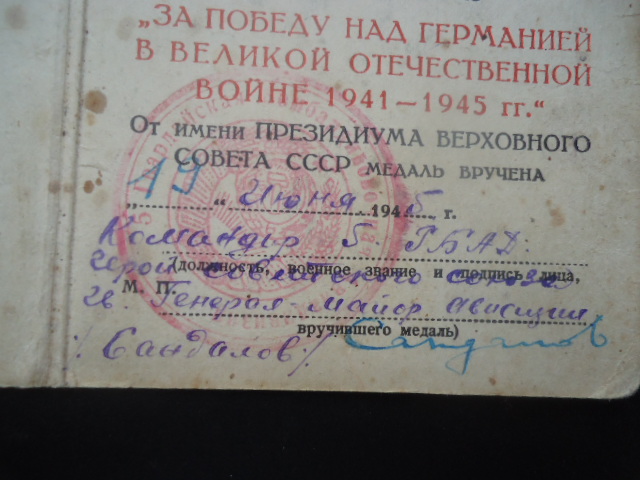 „ЗА ПОБЕДУ НАД ГЕРМАНИЕЙ
В ВЕЛИКОЙ ОТЕЧЕСТВЕННОЙ
ВОЙНЕ 1941—1945 гг.“
От имени ПРЕЗИДИУМА ВЕРХОВНОГО
СОВЕТА СССР МЕДАЛЬ ВРУЧЕНА
„19“ Июня 1945 г.
Командир 5 ГБАД
Герой Советского союза
(должность, военное звание и подпись лица,
М. П. гв. Генерал-Майор Авиации
вручившего медаль)
/Сандалов/